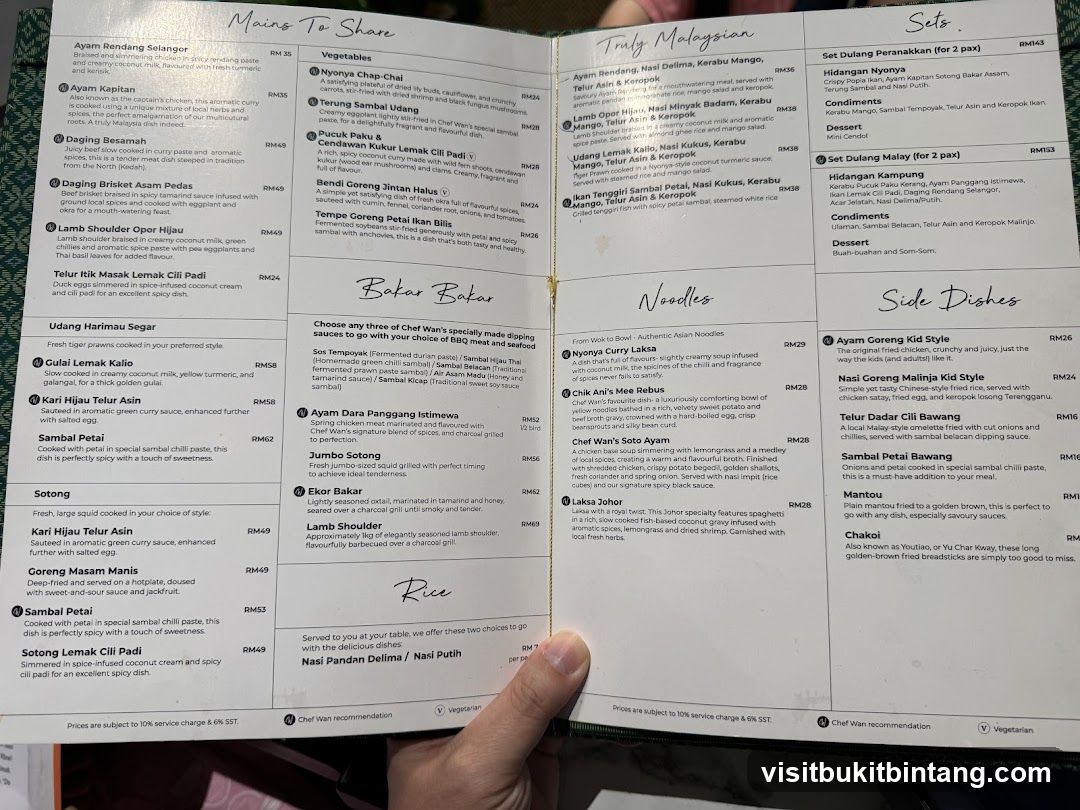 Mains To Share
Ayam Rendang Selangor RM 35
Braised and simmering chicken in spicy rendang paste
and creamy coconut milk, flavoured with fresh turmeric
and kerisik.
Ayam Kapitan RM35
Also known as the captain's chicken, this aromatic curry
is cooked using a unique mixture of local herbs and
spices, the perfect amalgamation of our multicultural
roots. A truly Malaysia dish indeed.
Daging Besamah RM49
Juicy beef slow cooked in curry paste and aromatic
spices, this is a tender meat dish steeped in tradition
from the North (Kedah).
Daging Brisket Asam Pedas RM49
Beef brisket braised in spicy tamarind sauce infused with
ground local spices and cooked with eggplant and
okra for a mouth-watering feast.
Lamb Shoulder Opor Hijau RM49
Lamb shoulder braised in creamy coconut milk, green
chillies and aromatic spice paste with pea eggplants and
Thai basil leaves for added flavour.
Telur Itik Masak Lemak Cili Padi RM24
Duck eggs simmered in spice-infused coconut cream
and cili padi for an excellent spicy dish.
Udang Harimau Segar
Fresh tiger prawns cooked in your preferred style.
Gulai Lemak Kalio RM58
Slow cooked in creamy coconut milk, yellow turmeric, and
galangal, for a thick golden gulai.
Kari Hijau Telur Asin RM58
Sauteed in aromatic green curry sauce, enhanced further
with salted egg.
Sambal Petai RM62
Cooked with petai in special sambal chilli paste, this
dish is perfectly spicy with a touch of sweetness.
Sotong
Fresh, large squid cooked in your choice of style:
Kari Hijau Telur Asin RM49
Sauteed in aromatic green curry sauce, enhanced
further with salted egg.
Goreng Masam Manis RM49
Deep-fried and served on a hotplate, doused
with sweet-and-sour sauce and jackfruit.
Sambal Petai RM53
Cooked with petai in special sambal chilli paste, this
dish is perfectly spicy with a touch of sweetness.
Sotong Lemak Cili Padi RM49
Simmered in spice-infused coconut cream and spicy
cili padi for an excellent spicy dish.
Vegetables
Nyonya Chap-Chai RM24
A satisfying plateful of dried lily buds, cauliflower, and crunchy
carrots, stir-fried with dried shrimp and black fungus mushrooms.
Terung Sambal Udang RM28
Creamy eggplant lightly stir-fried in Chef Wan's special sambal
paste, for a delightfully fragrant and flavourful dish.
Pucuk Paku &
Cendawan Kukur Lemak Cili Padi V RM28
A rich, spicy coconut curry made with wild fern shoots, cendawan
kukur (wood ear mushrooms) and clams. Creamy, fragrant and
full of flavour.
Bendi Goreng Jintan Halus V RM24
A simple yet satisfying dish of fresh okra full of flavourful spices,
sauteed with cumin, fennel, coriander root, onions, and tomatoes.
Tempe Goreng Petai Ikan Bilis RM26
Fermented soybeans stir-fried generously with petai and spicy
sambal with anchovies, this is a dish that's both tasty and healthy.
Bakar Bakar
Choose any three of Chef Wan's specially made dipping
sauces to go with your choice of BBQ meat and seafood
Sos Tempoyak (Fermented durian paste) / Sambal Hijau Thai
(Homemade green chilli sambal) / Sambal Belacan (Traditional
fermented prawn paste sambal) / Air Asam Madu (Honey and
tamarind sauce) / Sambal Kicap (Traditional sweet soy sauce
sambal)
Ayam Dara Panggang Istimewa RM52
Spring chicken meat marinated and flavoured with 1/2 bird
Chef Wan's signature blend of spices, and charcoal grilled
to perfection.
Jumbo Sotong RM56
Fresh jumbo-sized squid grilled with perfect timing
to achieve ideal tenderness.
Ekor Bakar RM62
Lightly seasoned oxtail, marinated in tamarind and honey,
seared over a charcoal grill until smoky and tender.
Lamb Shoulder RM69
Approximately 1kg of elegantly seasoned lamb shoulder,
flavourfully barbecued over a charcoal grill.
Rice
Served to you at your table, we offer these two choices to go
with the delicious dishes: RM 7
Nasi Pandan Delima / Nasi Putih per pe
Prices are subject to 10% service charge & 6% SST. Chef Wan recommendation V Vegetarian
Truly Malaysian
Ayam Rendang, Nasi Delima, Kerabu Mango, RM36
Telur Asin & Keropok
Savoury Ayam Rendang for a mouthwatering meal, served with
aromatic pandan pomegranate rice, mango salad and keropok.
Lamb Opor Hijau, Nasi Minyak Badam, Kerabu RM38
Mango, Telur Asin & Keropok
Lamb Shoulder braised in a creamy coconut milk and aromatic
spice paste. Served with almond ghee rice and mango salad.
Udang Lemak Kalio, Nasi Kukus, Kerabu RM38
Mango, Telur Asin & Keropok
Tiger Prawn cooked in a Nyonya-style coconut turmeric sauce,
served with steamed rice and mango salad.
Ikan Tenggiri Sambal Petai, Nasi Kukus, Kerabu RM38
Mango, Telur Asin & Keropok
Grilled tenggiri fish with spicy petai sambal, steamed white rice
Noodles
From Wok to Bowl - Authentic Asian Noodles
Nyonya Curry Laksa RM29
A dish that's full of flavours- slightly creamy soup infused
with coconut milk, the spiciness of the chilli and fragrance
of spices never fails to satisfy.
Chik Ani's Mee Rebus RM28
Chef Wan's favourite dish- a luxuriously comforting bowl of
yellow noodles bathed in a rich, velvety sweet potato and
beef broth gravy, crowned with a hard-boiled egg, crisp
beansprouts and silky bean curd.
Chef Wan's Soto Ayam RM28
A chicken base soup simmering with lemongrass and a medley
of local spices, creating a warm and flavourful broth. Finished
with shredded chicken, crispy potato begedil, golden shallots,
fresh coriander and spring onion. Served with nasi impit (rice
cubes) and our signature spicy black sauce.
Laksa Johor RM28
Laksa with a royal twist. This Johor specialty features spaghetti
in a rich, slow cooked fish-based coconut gravy infused with
aromatic spices, lemongrass and dried shrimp. Garnished with
local fresh herbs.
Sets
Set Dulang Peranakkan (for 2 pax) RM143
Hidangan Nyonya
Crispy Popia Ikan, Ayam Kapitan Sotong Bakar Assam,
Terung Sambal and Nasi Putih.
Condiments
Kerabu Mango, Sambal Tempoyak, Telur Asin and Keropok Ikan.
Dessert
Mini Cendol
Set Dulang Malay (for 2 pax) RM153
Hidangan Kampung
Kerabu Pucuk Paku Kerang, Ayam Panggang Istimewa,
Ikan Lemak Cili Padi, Daging Rendang Selangor,
Acar Jelatah, Nasi Delima/Putih.
Condiments
Ulaman, Sambal Belacan, Telur Asin and Keropok Malinjo.
Dessert
Buah-buahan and Som-Som.
Side Dishes
Ayam Goreng Kid Style RM26
The original fried chicken, crunchy and juicy, just the
way the kids (and adults!) like it.
Nasi Goreng Malinja Kid Style RM24
Simple yet tasty Chinese-style fried rice, served with
chicken satay, fried egg, and keropok losong Terengganu.
Telur Dadar Cili Bawang RM16
A local Malay-style omelette fried with cut onions and
chillies, served with sambal belacan dipping sauce.
Sambal Petai Bawang RM16
Onions and petai cooked in special sambal chilli paste,
this is a must-have addition to your meal.
Mantou RM1
Plain mantou fried to a golden brown, this is perfect to
go with any dish, especially savoury sauces.
Chakoi RM
Also known as Youtiao, or Yu Char Kway, these long
golden-brown fried breadsticks are simply too good to miss.
Prices are subject to 10% service charge & 6% SST. Chef Wan recommendation V Vegetarian
visitbukitbintang.com